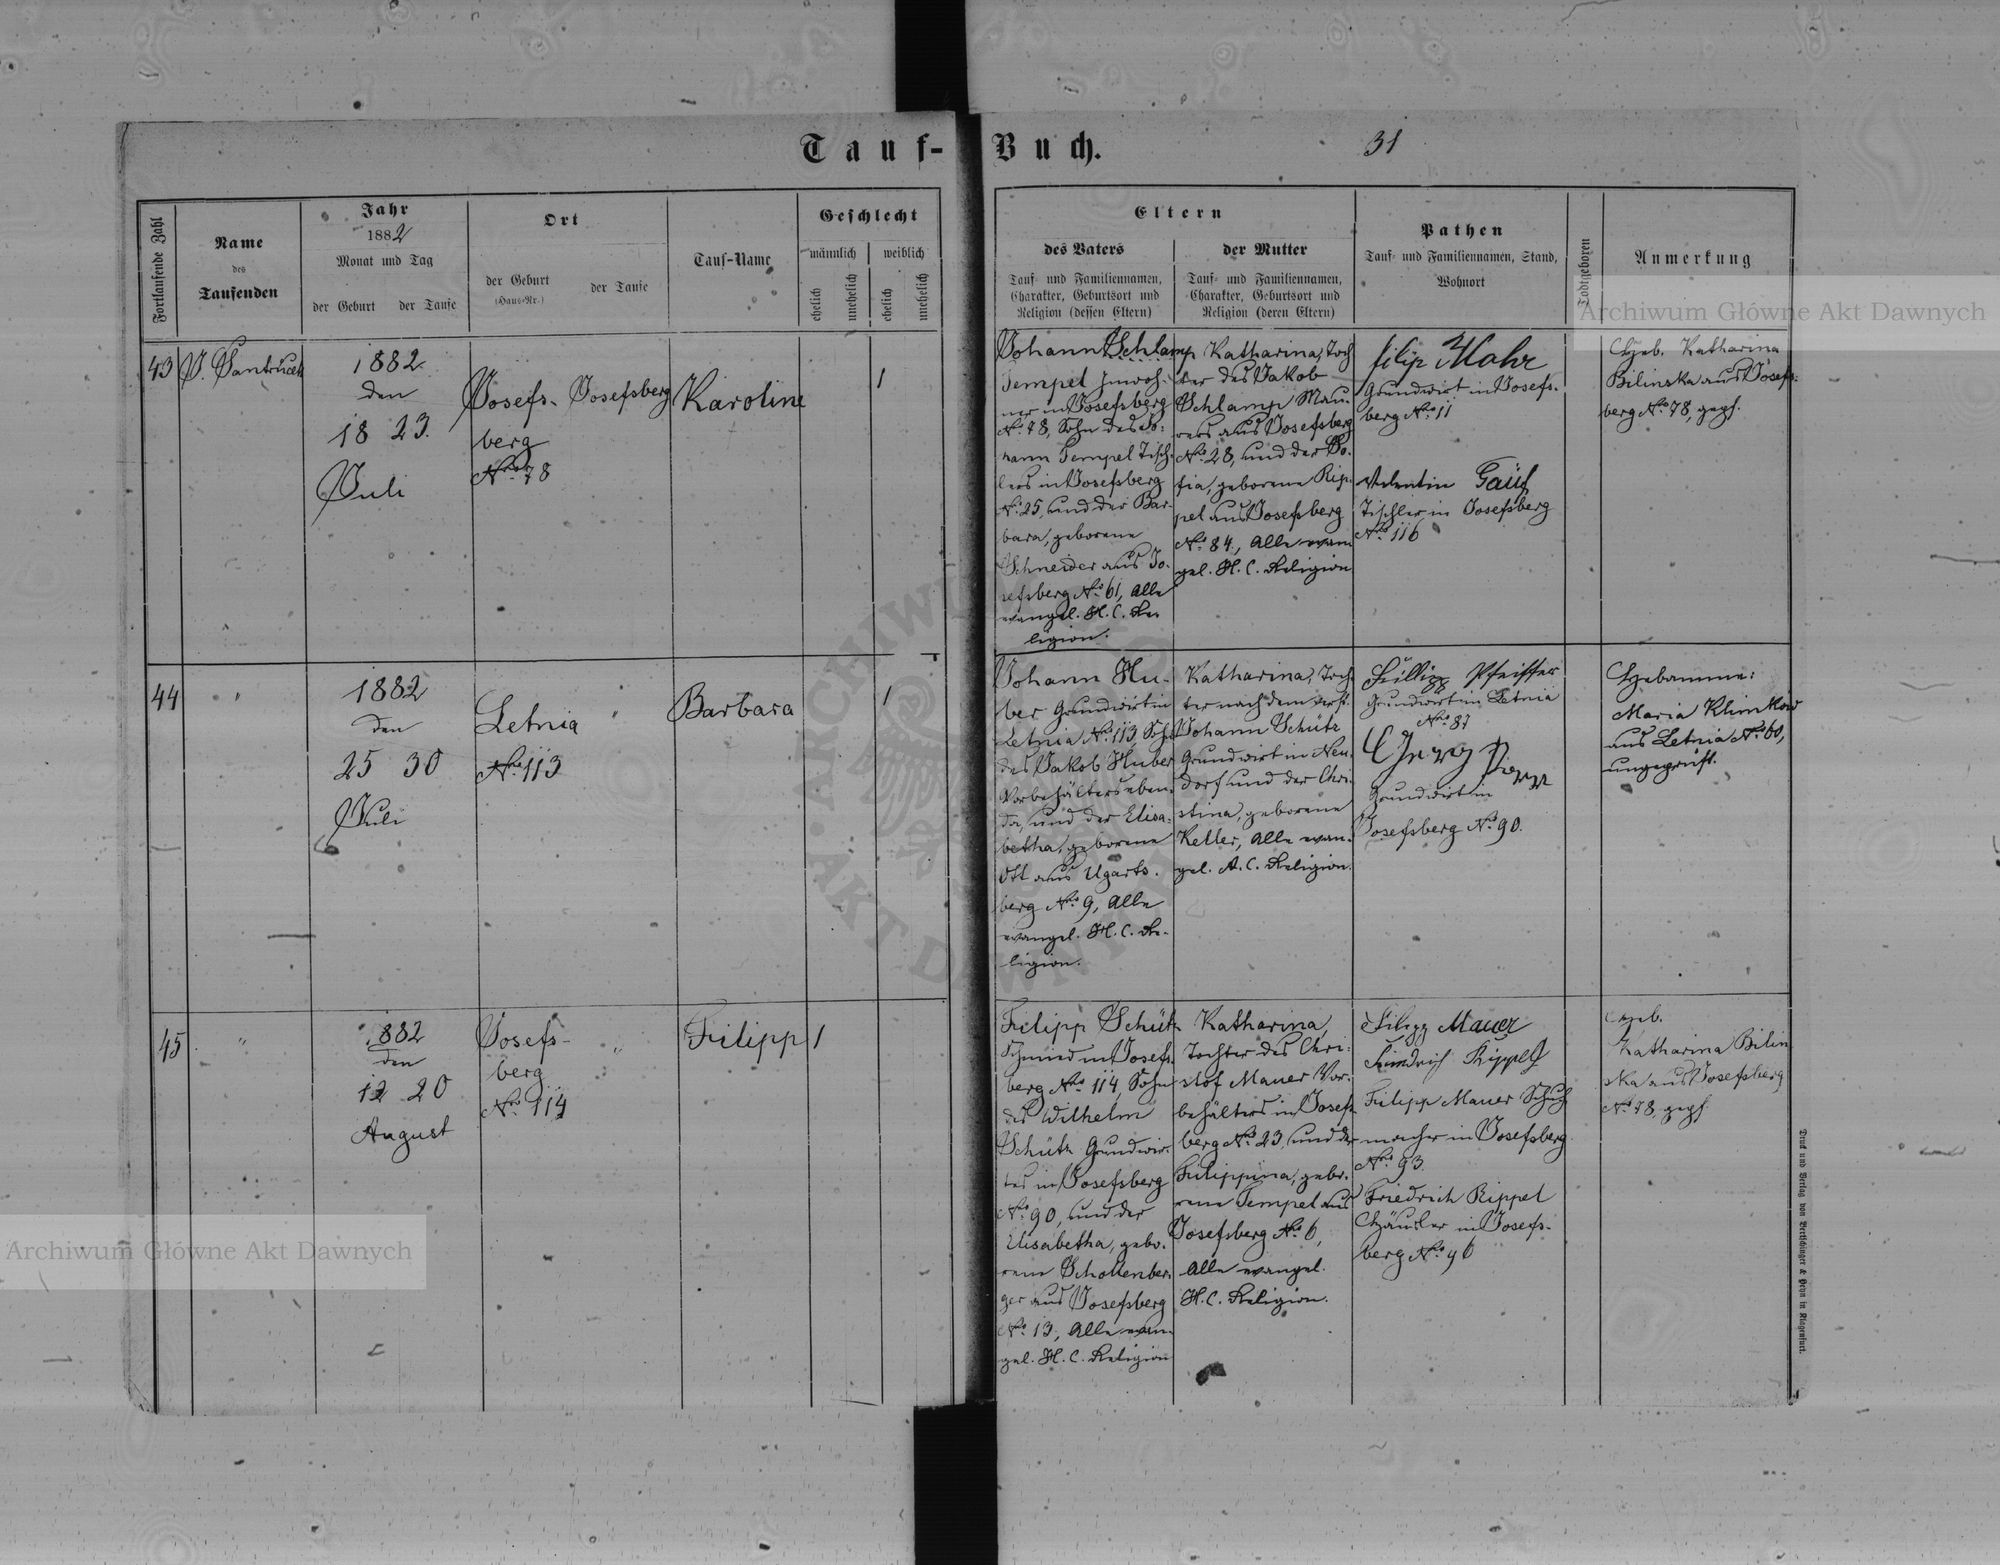 Tauf-Buch.
31
Fortlaufende Zahl
Name
des
Taufenden
Jahr
1882
Monat und Tag
der Geburt der Taufe
Ort
der Geburt
(Haus-Nr.)
der Taufe
Tauf-Name
Geschlecht
männlich weiblich
ehelich
unehelich
ehelich
unehelich
Eltern
des Vaters
Tauf- und Familiennamen,
Charakter, Geburtsort und
Religion (dessen Eltern)
der Mutter
Tauf- und Familiennamen,
Charakter, Geburtsort und
Religion (deren Eltern)
Pathen
Tauf- und Familiennamen, Stand,
Wohnort
Todtgeboren
Anmerkung
43
1882
den
18 23.
Juli
Josefs-
berg
Nro 78
Josefsberg
Karoline
1
Johann Schlamp
Tempel Inwoh-
ner in Josefsberg
No 78, Sohn des Jo-
hann Tempel Tisch-
lers in Josefsberg
No 25, und der Bar-
bara, geborene
Schneider aus Jo-
sefsberg No 61, Alle
evangel. H. C. Re-
ligion.
Katharina, Toch
ter des Jakob
Schlamp Mau-
rers aus Josefsberg
No 28, und der So-
fia, geborene Rip-
pel aus Josefsberg
No 84, Alle evan
gel. H. C. Religion
filip Mohr
Grundwirt in Josefs-
berg No 11
Valentin
Tischler in Josefsberg
Nro 116
Heb. Katharina
Bilinska aus Josefs-
berg No 78, gepr.
44
"
1882
den
25 30
Juli
Letnia
Nro 113
"
Barbara
1
Johann Hu-
ber Grundwirt in
Letnia No 113, Sohn
des Jakob Huber
Vorbehälters eben-
da, und der Elisa-
betha, geborene
Ott aus Ugarts-
berg No 9, Alle
evangel. H. C. Re-
ligion.
Katharina, Toch-
ter nach dem verst.
Johann Schütz
Grundwirt in Neu-
dorf und der Chri-
stina, geborene
Keller, Alle evan-
gel. A. C. Religion.
Fillipp Pfeiffer
Grundwirt in Letnia
Nro 87
Georg
Grundwirt in
Josefsberg No 90.
Hebamme:
Maria Klimkow
aus Letnia No 60,
ungeprüft.
45
"
1882
den
12 20
August
Josefs-
berg
Nro 114
"
Filipp
1
Filipp Schütz
Schmied in Josefs-
berg No 114, Sohn
des Wilhelm
Schütz Grundwir-
tes in Josefsberg
No 90, und der
Elisabetha, gebo-
rene Schollenber-
ger aus Josefsberg
No 13, Alle evan
gel. H. C. Religion
Katharina,
Tochter des Chri-
stof Mauer Vor-
behälters in Josefs-
berg No 23, und der
Filippina, gebo-
rene Tempel aus
Josefsberg No 6,
Alle evangel.
H. C. Religion.
Filipp Mauer
Friedrich Rippel
Filipp Mauer Schuh
macher in Josefsberg
Nro 93.
Friedrich Rippel
Häusler in Josefs-
berg No 46
Heb.
Katharina Bilin
ska aus Josefsberg
No 78, gepr.
Druck und Verlag von Bertschinger & Heyn in Klagenfurt.
Archiwum Główne Akt Dawnych
Archiwum Główne Akt Dawnych